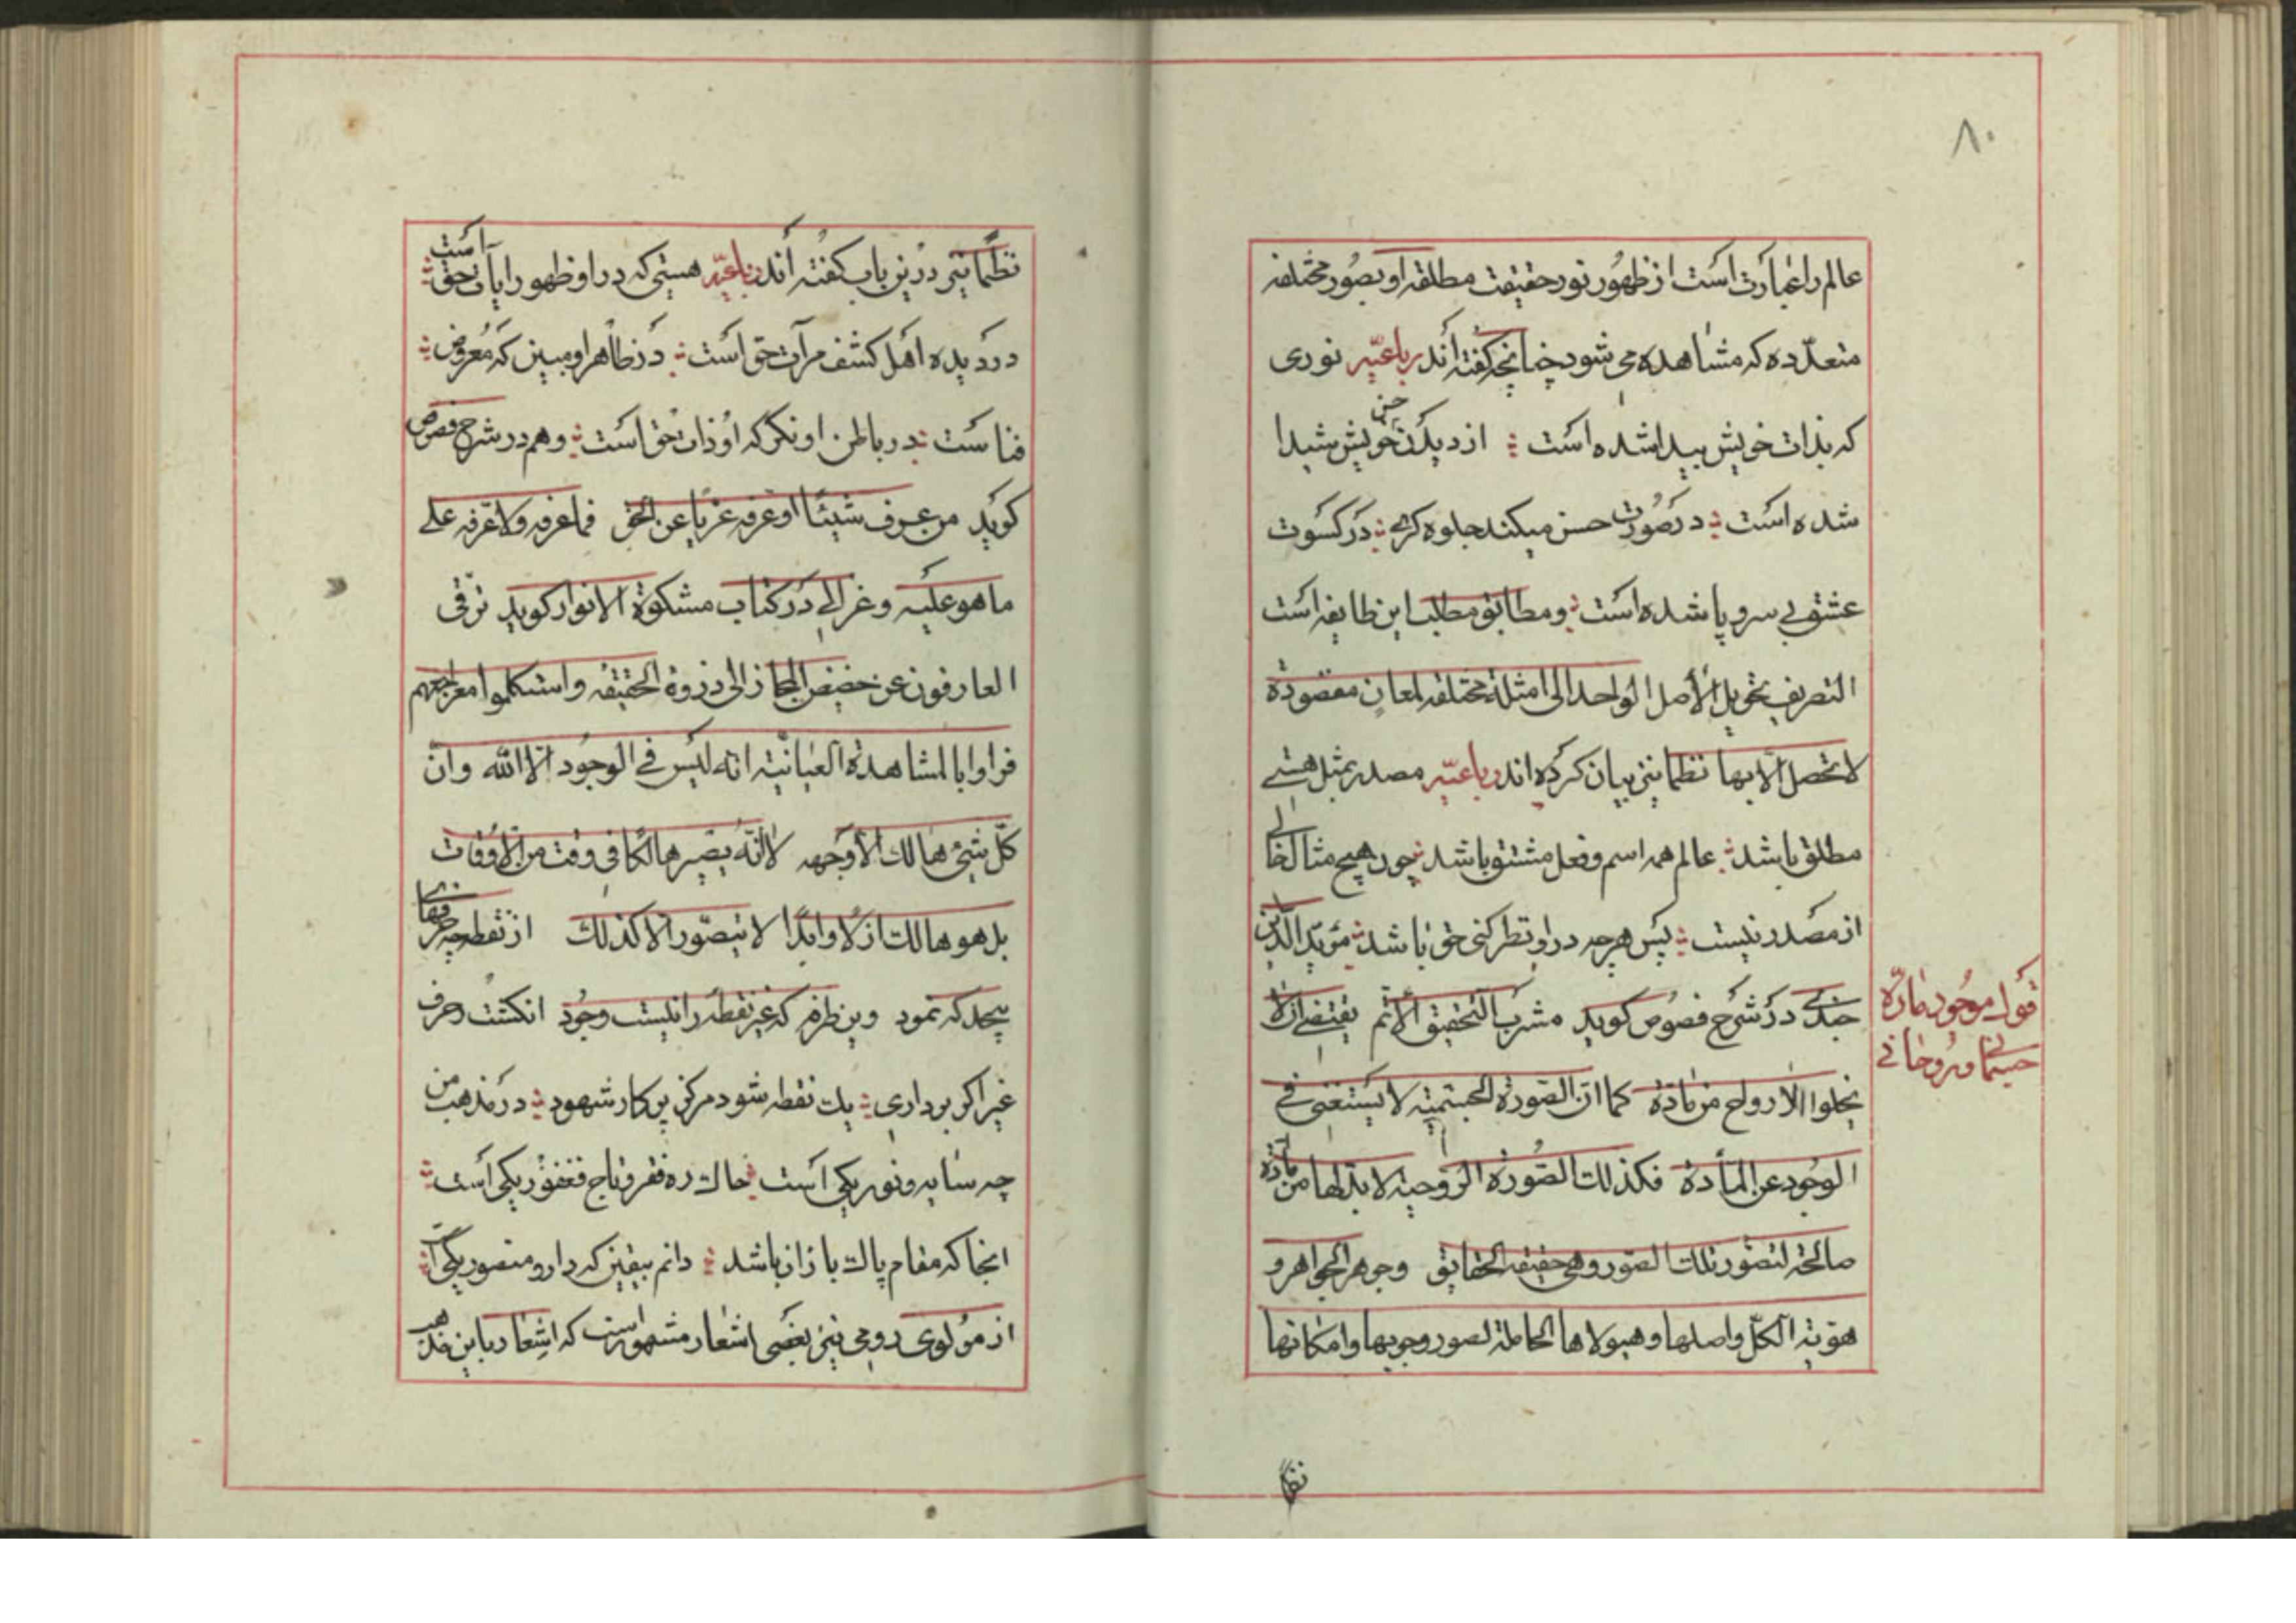 ۸۰
عالم را عبارت است از ظهور نور حقیقت مطلقه او بصور مختلفه
متعدّده که مشاهده می شود چنانچه گفته اند رباعیّه نوری
که بذات خویش پیدا شده است از دیدن حسن خویش شیدا
شده است در صورت حسن میکند جلوه گری در کسوت
عشق بی سر و پا شده است و مطابق مطلب این طایفه است
التصریف تحویل الأصل الواحد الی امثلة مختلفه لمعانٍ مقصودة
لا تحصل الّا بها نظما نیز بیان کرده اند رباعیّه مصدر بمثل هستی
مطلق باشد عالم همه اسم و فعل مشتق باشد چون هیچ مثال خالی
از مصدر نیست پس هر چه در او نظر کنی حق باشد مؤید الدین
جندی در شرح فصوص گوید مشرب التحقیق الأتم یقتضی ان لا
یخلوا الارواح من مادة کما ان الصورة الجسمیّة لا یستغنی فی
الوجود عن المادة فکذلک الصورة الروحیة لا بد لها من مادة
صالحة لتصور تلک الصور وهی حقیقة الحقایق وجوهر الجواهر و
هویّة الکلّ واصلها وهیولاها الحاملة لصور وجوبها وامکانها
قول موجود مادّه
جسمانی و روحانی
نظما
نظما نیز درین باب گفته اند رباعیّه هستی که در او ظهور آیات حق است
در دیده اهل کشف مرآت حق است در ظاهر او مبین که معروض
فناست در باطن او نگر که او ذات حق است و هم در شرح فصوص
گوید من عرف شیئًا او عرفه عریًا عن الحق فما عرفه ولا عرّفه علی
ما هو علیه و غزالی در کتاب مشکوة الانوار گوید ترقی
العارفون عن حضیض المجاز الی ذروة الحقیقه واستکملوا معراجهم
فراوا بالمشاهدة العیانیّة انه لیس فی الوجود الّا الله وانّ
کلّ شیئ هالک الّا وجهه لا انّه یصیر هالکًا فی وقت من الاوقات
بل هو هالک ازلًا وابدًا لا یتصوّر الا کذلک از نقطه چه حرفهای
بیحد که نمود وین طرفه که غیر نقطه را نیست وجود انگشت ز حرف
غیر اگر برداری یک نقطه شود مرکز پرکار شهود در مذهب من
چه سایه و نور یکی است خاک ره فقر و تاج فغفور یکی است
انجا که مقام پاک بازان باشد دانم بیقین که دار و منصور یکی است
از مولوی رومی نیز بعضی اشعار مشهور است که اشعار باین مذهب